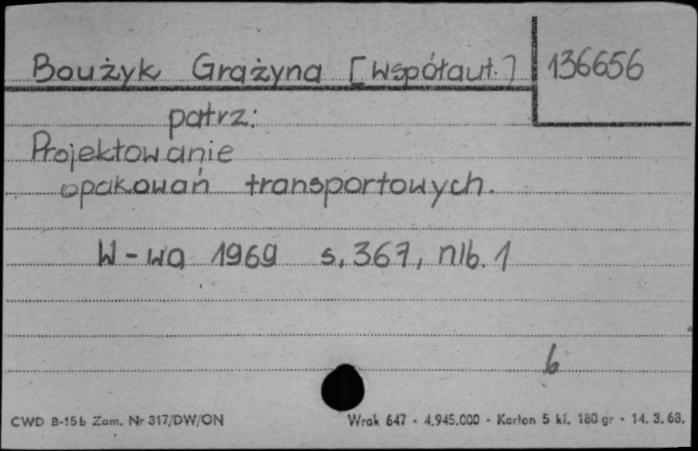 Boużyk Grażyna [współaut.] 136656
patrz:
Projektowanie
opakowań transportowych.
W-wa 1969 s. 367, nlb. 1
b
CWD B-15b Zam. Nr 317/DW/ON Wrak 647 - 4.945.000 - Karton 5 kl. 180 gr - 14. 3. 68.